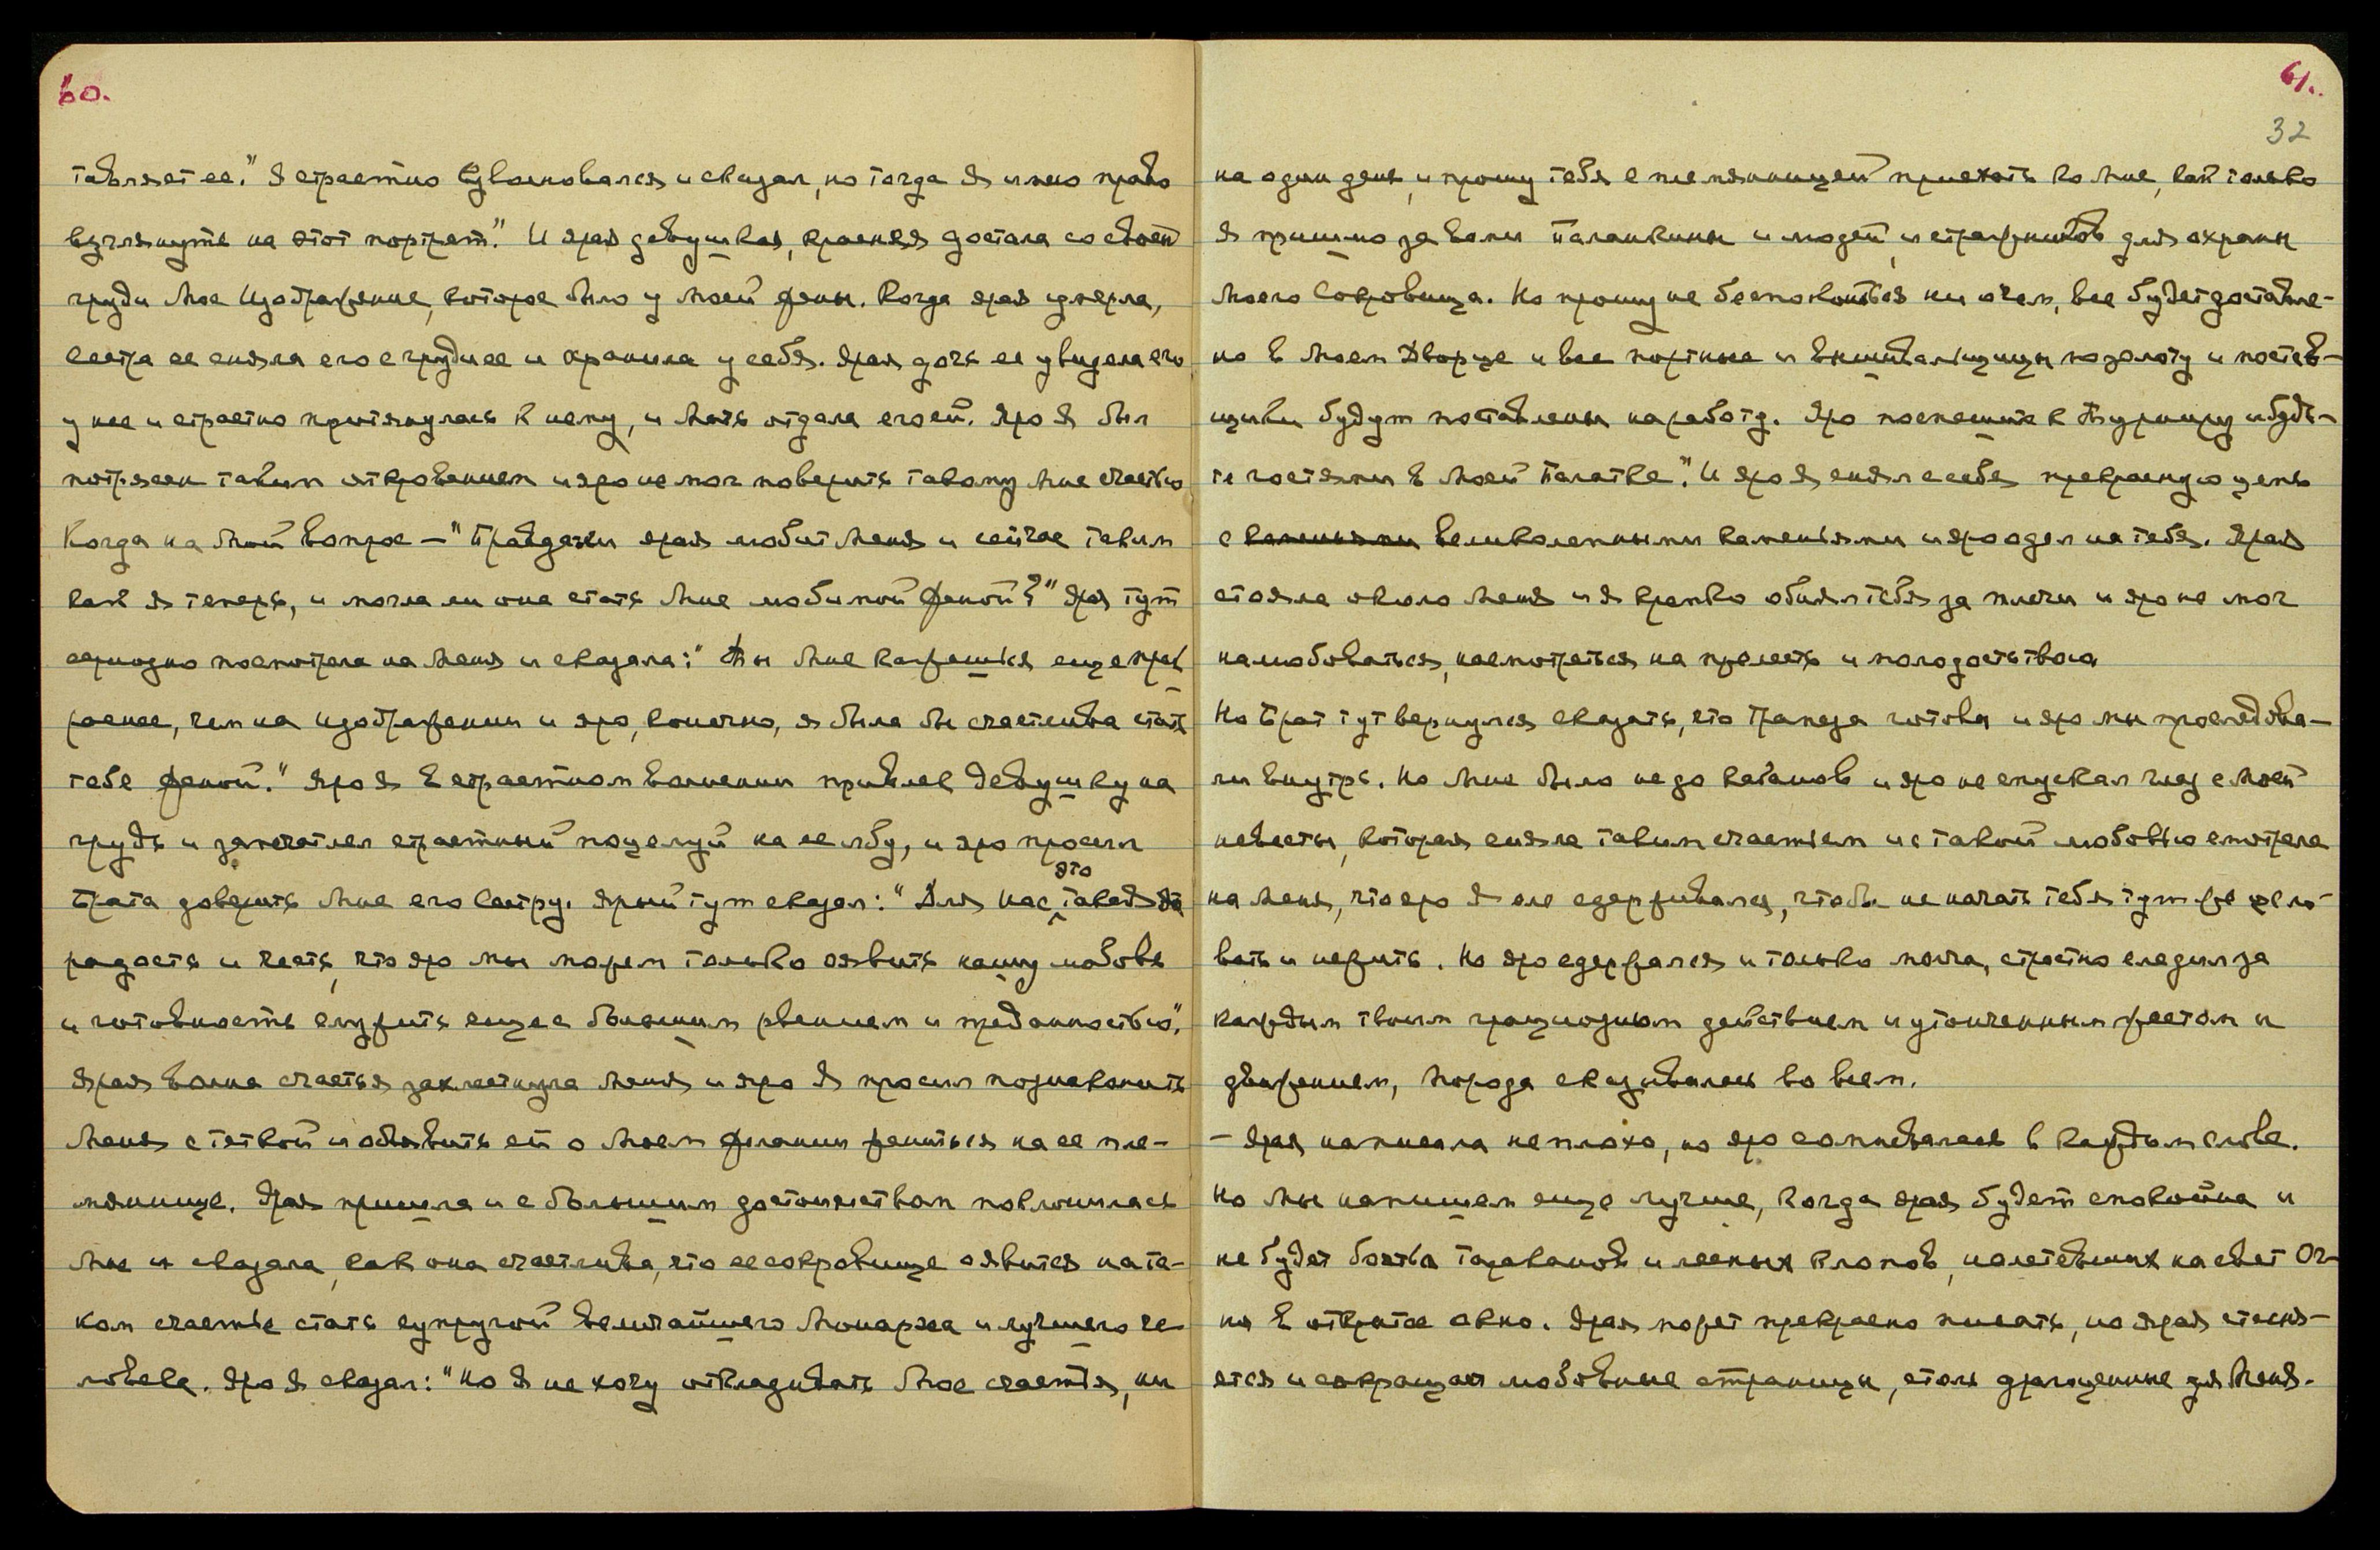 60.
тавляет ее." Я страстно взволновался и сказал, но тогда Я имею право
взглянуть на этот портрет." И яряя девушкая, краснея достала со своей
груди Мое Изображение, которое было у Моей жены. Когда яряя умерла,
сестра ее сняла его с груди ее и хранила у себя. Яряя дочь ее увидела его
у нее и страстно притянулась к нему, и Мать отдала его ей. Яро Я был
потрясен таким откровением и яро не мог поверить такому Мне счастью
Когда на Мой Вопрос — "Правда ли яряя любит Меня и сейчас таким
как Я теперь, и могла ли она стать Мне любимой женой?" Яряя тут
серьозно посмотрела на Меня и сказала: "Ты Мне кажешься еще прек
раснее, чем на изображении и яро, конечно, я была бы счастлива стать
тебе женой." Яро Я в страстном волнении привлек девушку на
грудь и запечатлел страстный поцелуй на ее лбу, и яро просил
Брата доверить Мне его Сестру. Ярый тут сказал: "Для нас это такая
радость и честь, что яро мы можем только явить нашу любовь
и готовность служить еще с большим рвением и преданностью".
Яряя Волна счастья захлестнула Меня и яро Я просил познакомить
Меня с теткой и объявить ей о Моем желании жениться на ее пле-
мяннице. Яряя пришла и с большим достоинством поклонилась
Мне и сказала, как она счастлива, что ее сокровище явится на та-
ком счастье стать супругой Величайшего Монарха и лучшего че-
ловека. Яро Я сказал: "Но Я не хочу откладывать Мое счастья, ни
61.
32
на один день, и прошу тебя с племянницей приехать ко Мне, как только
Я пришлю за вами Паланкины и людей, и стражников для охраны
Моего Сокровища. Но прошу не беспокоиться ни о чем, все будет доставле-
но в Моем Дворце и все портные и вышивальщицы по золоту и постав-
щики будут поставлены на работу. Яро поспешите к Турниру и будь-
те гостями в Моей Палатке." И яро Я снял с себя прекрасную цепь
с каменьями великолепными каменьями и яро одел на тебя. Яряя
стояла около Меня и Я крепко обнял тебя за плечи и яро не мог
налюбоваться, насмотреться на прелесть и молодость твою
Но Брат тут вернулся сказать, что Трапеза готова и яро мы проследова-
ли внутрь. Но Мне было не до кабанов и яро не спускал глаз с Моей
невесты, которая сияла таким счастьем и с такой любовью смотрела
на Меня, что яро Я еле сдерживался, чтобы не начать тебя тут же цело-
вать и нежить. Но яро сдержался и только молча, страстно следил за
каждым твоим грациозным действием и утонченным жестом и
движением, Порода сказывалась во всем.
— Яряя написала не плохо, но яро сомневалась в каждом слове.
Но Мы напишем еще лучше, когда яряя будет спокойна и
не будет бояться тараканов и лесных клопов, налетевших на свет Ог-
ня в открытое окно. Яряя может прекрасно писать, но яряя стесня-
ется и сокращает любовные страницы, столь драгоценные для Меня.